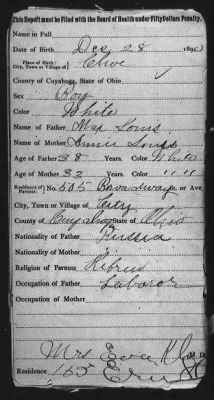 This Report must be Filed with the Board of Health under Fifty Dollars Penalty.
Name in Full
Date of Birth Dec 28 189
Place of Birth
City, Town or Village of
County of Cuyahoga, State of Ohio
Sex Boy
Color White
Name of Father Max
Name of Mother Annie
Age of Father 38 Years. Color White
Age of Mother 32 Years. Color " "
Residence of Parents: No. 535 Broadway or Ave.
City, Town or Village of City
County of State of Ohio
Nationality of Father Russia
Nationality of Mother "
Religion of Parents Hebrew
Occupation of Father Laborer
Occupation of Mother
Mrs
Residence 155 Erie